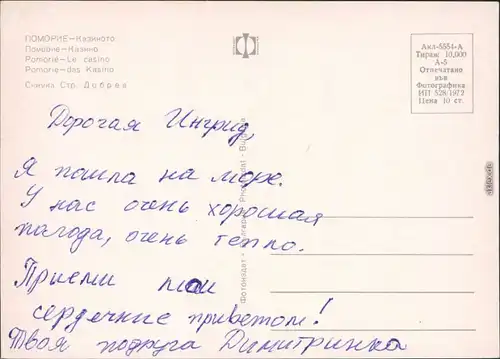 ПОМОРИЕ—Казиното
Поморие—Казино
Pomorie—Le casino
Pomorie—das Kasino
Снимка Стр. Добрев
Акл-5554-А
Тираж 10,000
А-5
Отпечатано
във
Фотографика
ИП 528/1972
Цена 10 ст.
Дорогая Ингрид,
Я пошла на море.
У нас очень хорошая
погода, очень тепло.
Приеми мои
сердечние приветом!
Твоя подруга Димитринка
Фотоиздат - Болгария Photoizdat - Bulgaria